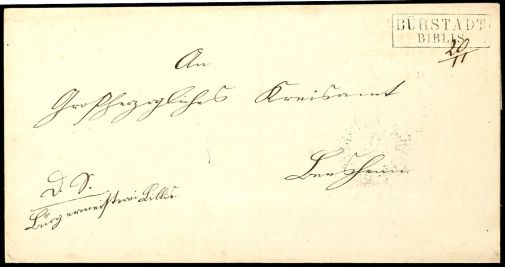 BÜRSTADT
BIBLIS
20/11
An
Großherzogliches Kreisamt
Bensheim
D. S.
Bürgermeisterei Biblis.